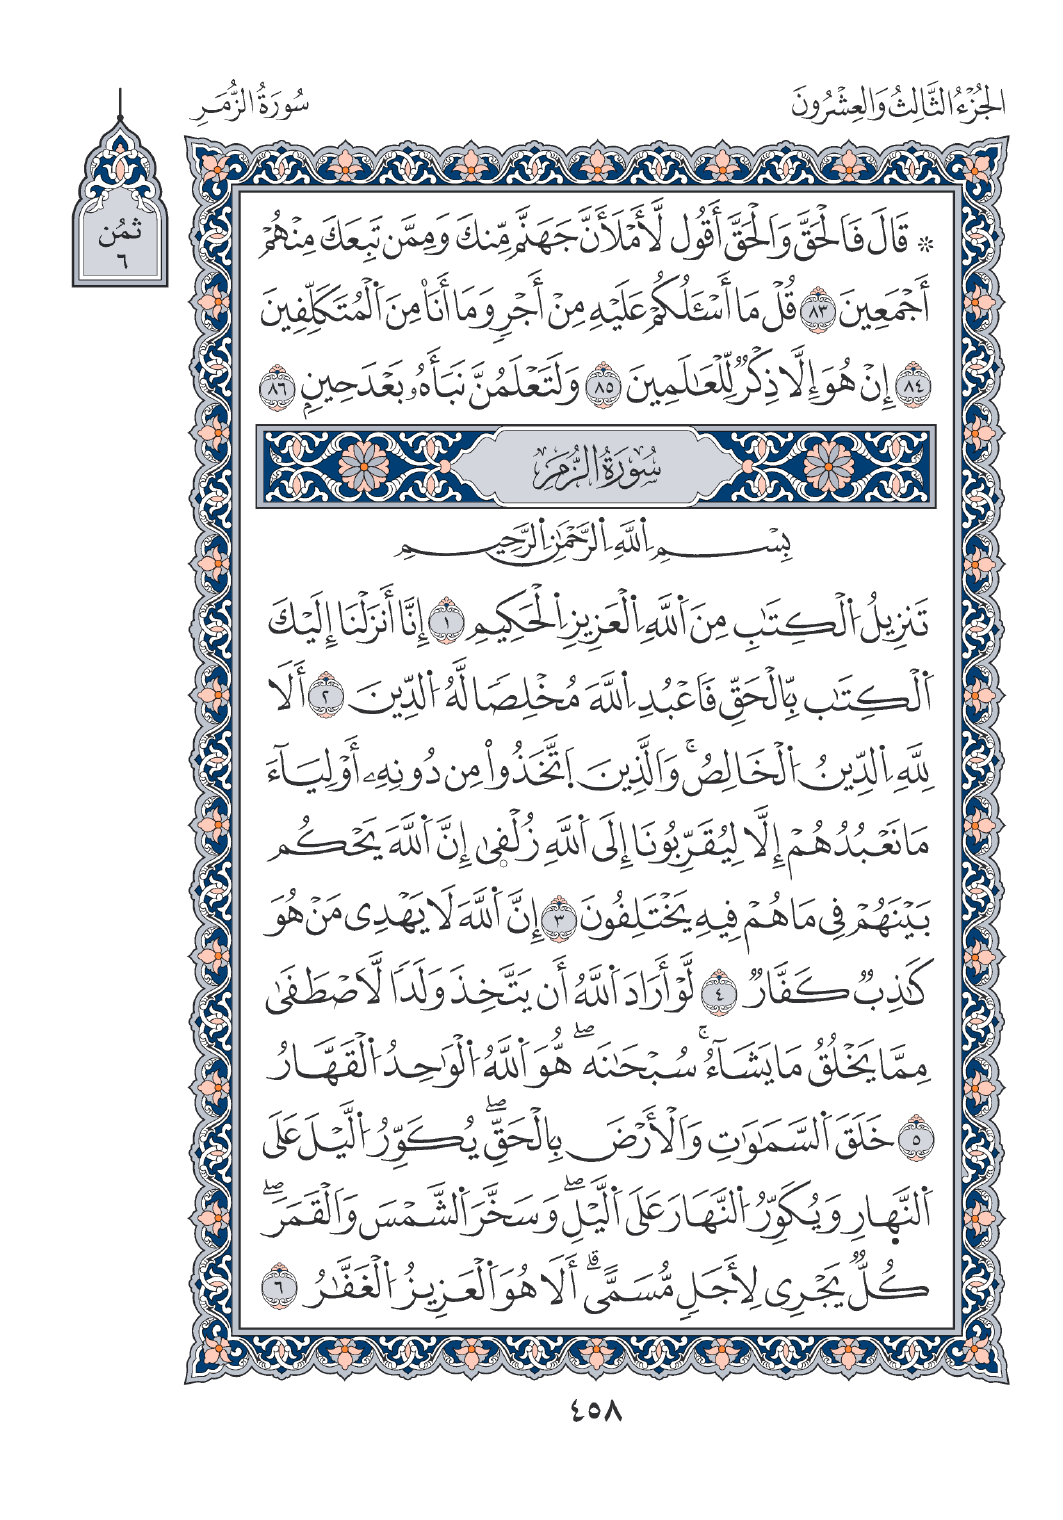 الجُزْءُ الثَّالِثُ وَالعِشْرُونَ
سُورَةُ الزُّمَرِ
ثُمُن
٦
۞ قَالَ فَالْحَقَّ وَالْحَقَّ أَقُول لَّأَمْلَأَنَّ جَهَنَّم مِّنكَ وَمِمَّن تَبِعَكَ مِنْهُمْ
أَجْمَعِينَ ٨٣ قُلْ مَا أَسْـَٔلُكُمْ عَلَيْهِ مِنْ أَجْرٖ وَمَا أَنَا۠ مِنَ اَ۬لْمُتَكَلِّفِينَ
٨٤ إِنْ هُوَ إِلَّا ذِكْرٞ لِّلْعَٰلَمِينَ ٨٥ وَلَتَعْلَمُنَّ نَبَأَهُۥ بَعْدَ حِينِۢ ٨٦
سُورَةُ الزُّمَرِ
بِسْمِ اِ۬للَّهِ اِ۬لرَّحْمَٰنِ اِ۬لرَّحِيمِ
تَنزِيلُ اُ۬لْكِتَٰبِ مِنَ اَ۬للَّهِ اِ۬لْعَزِيزِ اِ۬لْحَكِيمِ ١ إِنَّا أَنزَلْنَا إِلَيْكَ
اَ۬لْكِتَٰب بِّالْحَقِّ فَاعْبُدِ اِ۬للَّهَ مُخْلِصٗا لَّهُ اُ۬لدِّينَ ٢ أَلَا
لِلَّهِ اِ۬لدِّينُ اُ۬لْخَالِصُۚ وَالَّذِينَ اَ۪تَّخَذُواْ مِن دُونِهِۦ أَوْلِيَآءَ
مَا نَعْبُدُهُمْ إِلَّا لِيُقَرِّبُونَا إِلَى اَ۬للَّهِ زُلْف۪ىٰ إِنَّ اَ۬للَّهَ يَحْكُم
بَيْنَهُمْ فِي مَا هُمْ فِيهِ يَخْتَلِفُونَ ٣ إِنَّ اَ۬للَّهَ لَا يَهْدِي مَنْ هُوَ
كَٰذِبٞ كَفَّارٞ ٤ لَّوْ أَرَادَ اَ۬للَّهُ أَن يَتَّخِذَ وَلَدٗا لَّاصْطَفَىٰ
مِمَّا يَخْلُقُ مَا يَشَآءُۚ سُبْحَٰنَهۖ هُّوَ اَ۬للَّهُ اُ۬لْوَٰحِدُ اُ۬لْقَهَّارُ
٥ خَلَقَ اَ۬لسَّمَٰوَٰتِ وَالْأَرْضَ بِالْحَقِّۖ يُكَوِّرُ اُ۬لَّيْلَ عَلَى
اَ۬لنَّه۪ارِ وَيُكَوِّرُ اُ۬لنَّهَارَ عَلَى اَ۬لَّيْلِۖ وَسَخَّرَ اَ۬لشَّمْسَ وَالْقَمَرَۖ
كُلّٞ يَجْرِي لِأَجَلٖ مُّسَمّٗىۗ أَلَا هُوَ اَ۬لْعَزِيزُ اُ۬لْغَفَّٰرُ ٦
٤٥٨